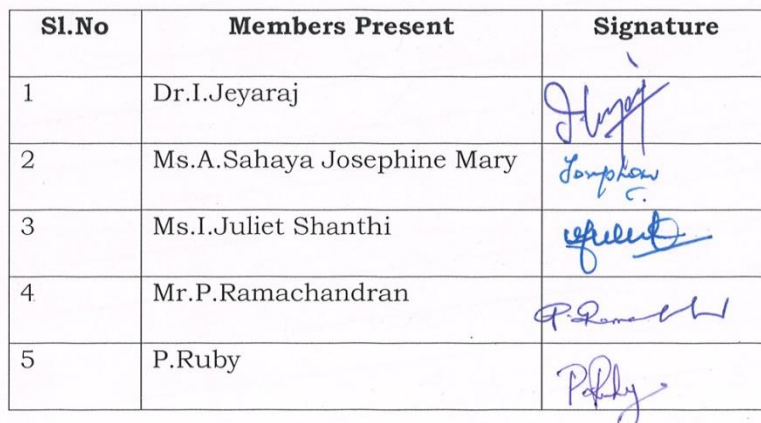 Sl.No Members Present Signature
1 Dr.I.Jeyaraj
2 Ms.A.Sahaya Josephine Mary
3 Ms.I.Juliet Shanthi
4 Mr.P.Ramachandran
5 P.Ruby P.Ruby